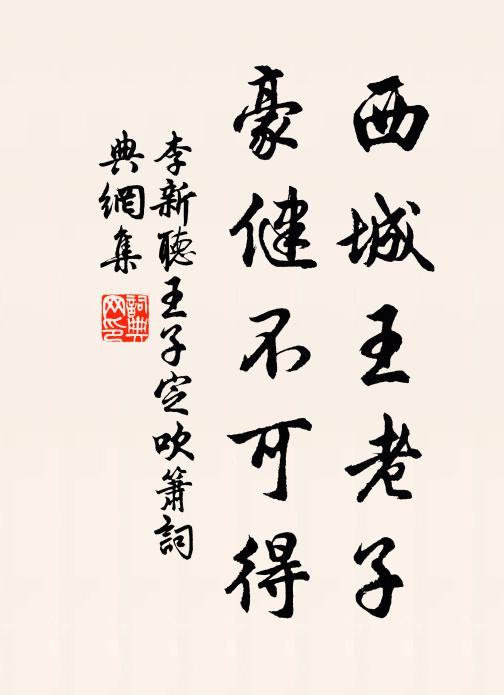 西城王老子
豪健不可得
李新聽王子定吹簫詞
典網集
詞典
网印